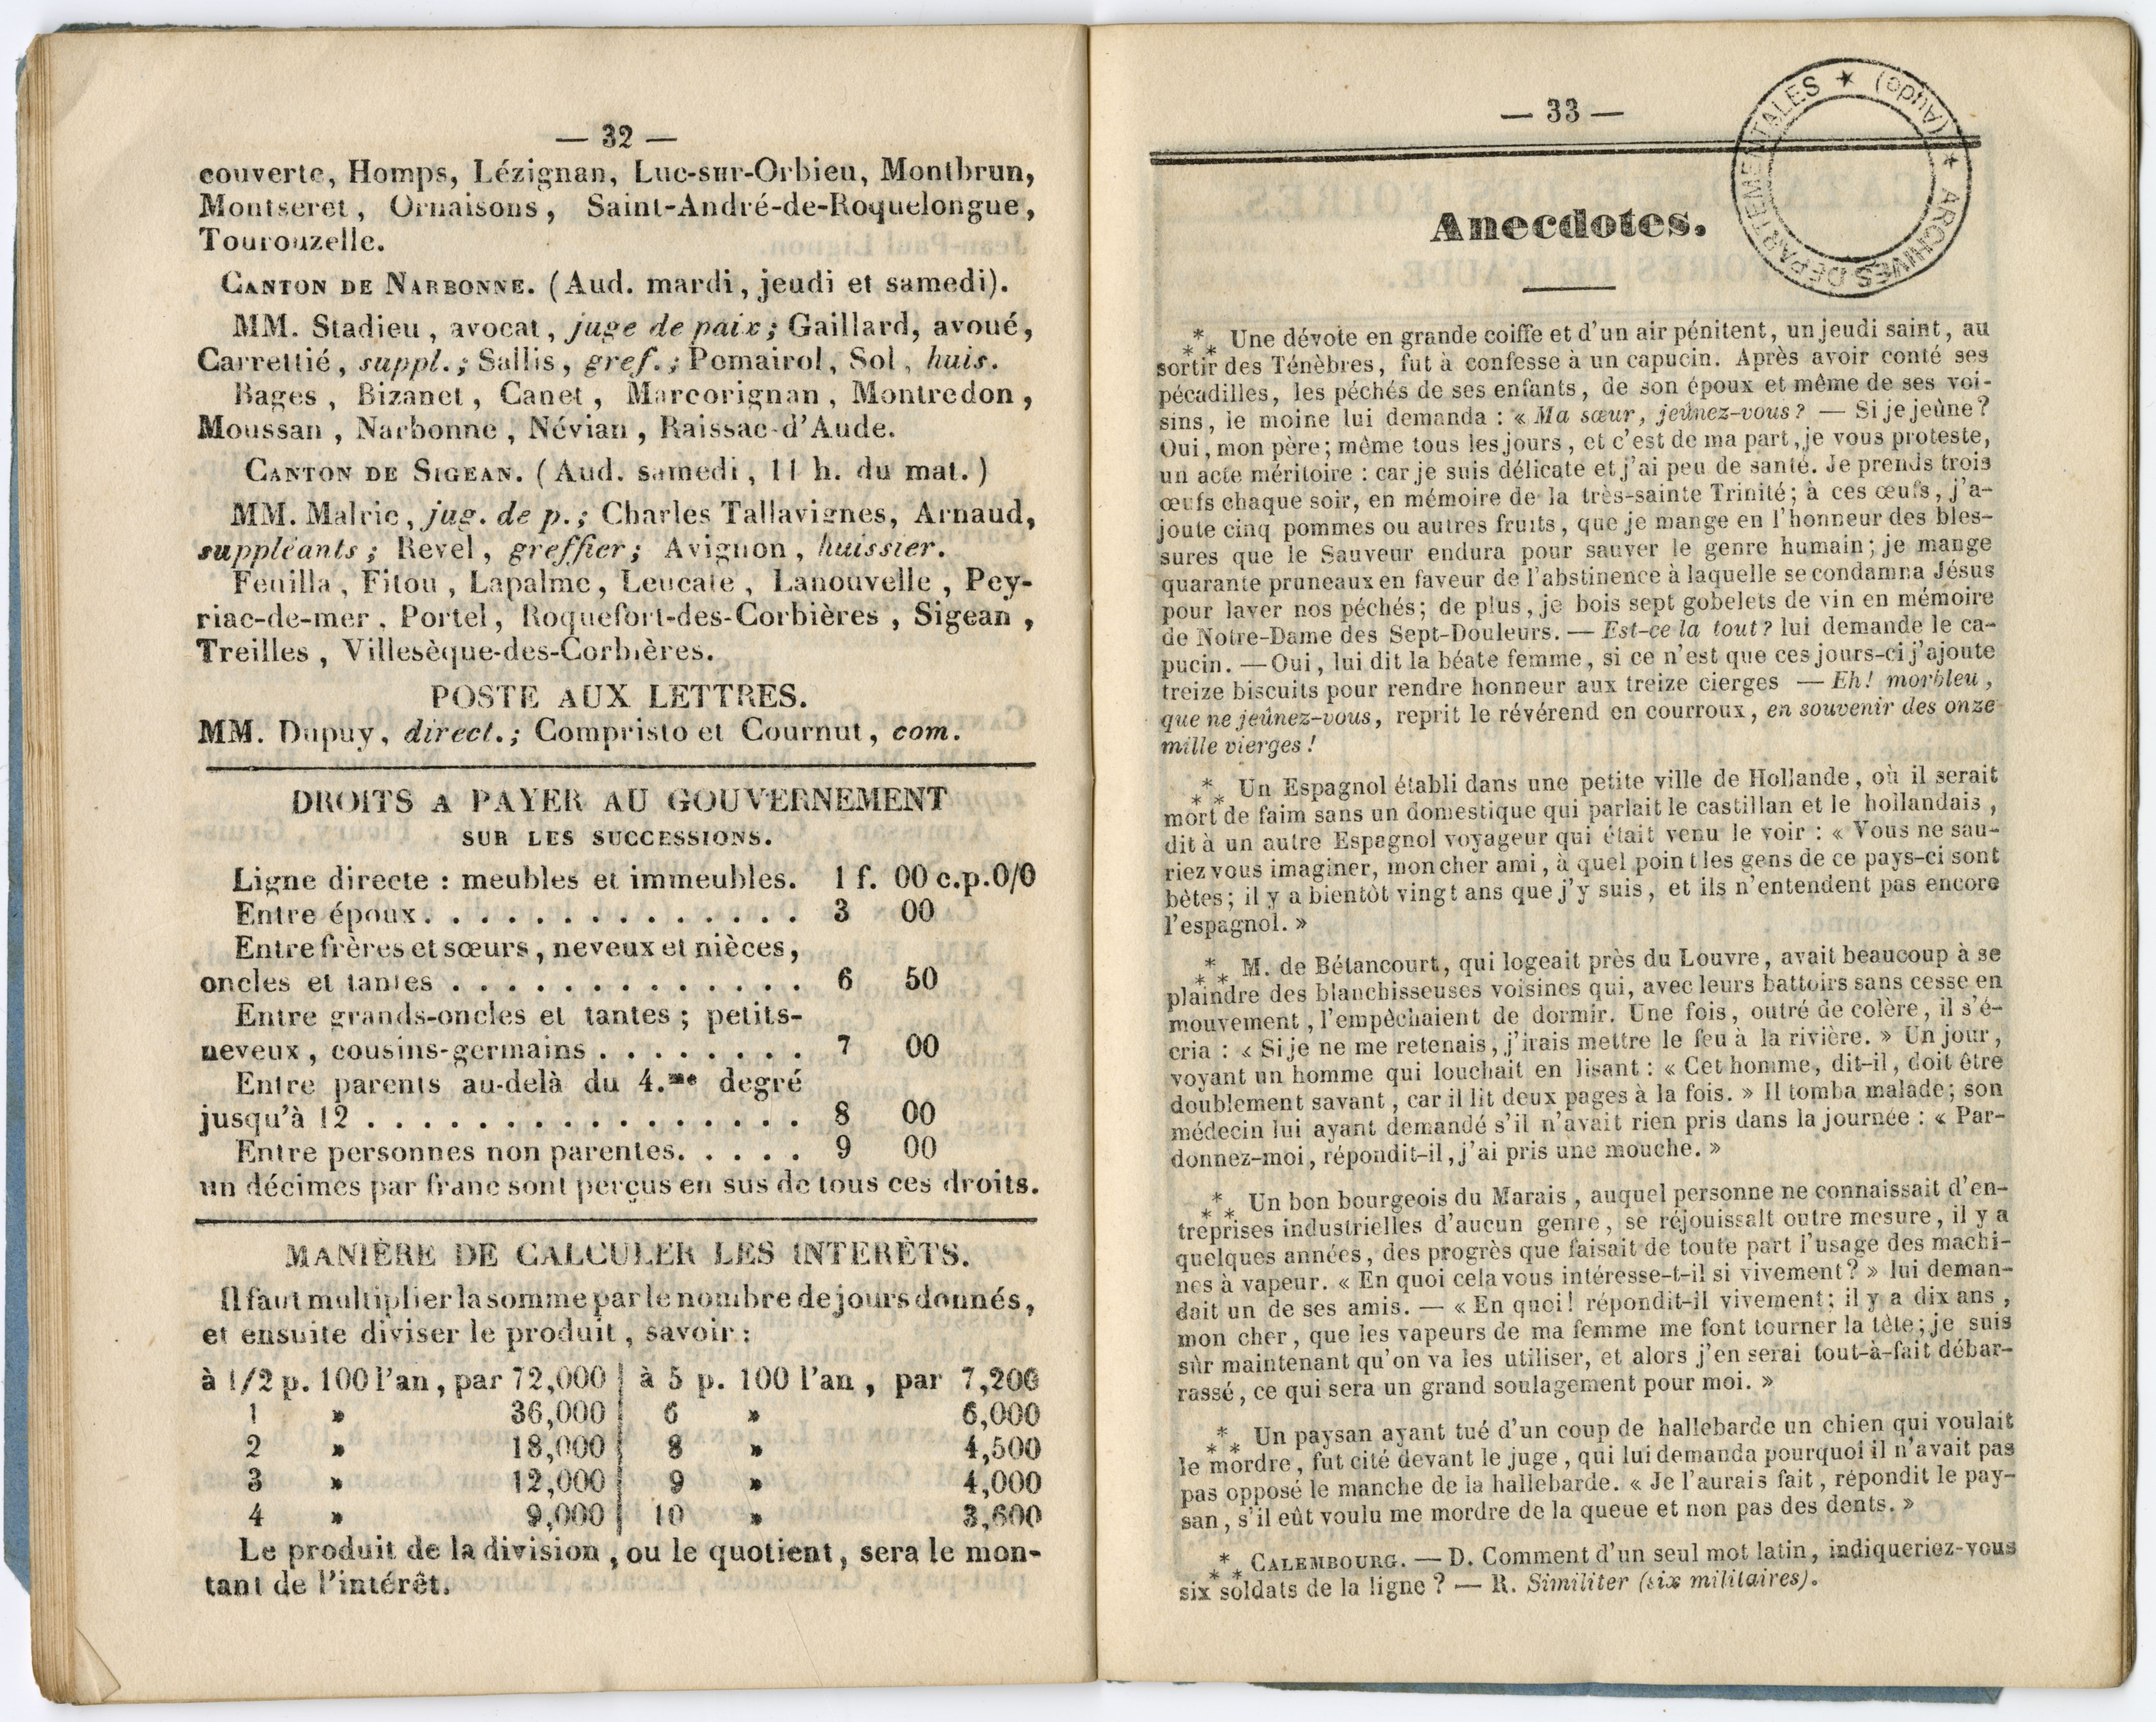 — 32 —
couverte, Homps, Lézignan, Luc-sur-Orbieu, Montbrun,
Montseret, Ornaisons, Saint-André-de-Roquelongue,
Tourouzelle.
CANTON DE NARBONNE. (Aud. mardi, jeudi et samedi).
MM. Stadieu, avocat, juge de paix; Gaillard, avoué,
Carrettié, suppl.; Sallis, gref.; Pomairol, Sol, huis.
Bages, Bizanet, Canet, Marcorignan, Montredon,
Moussan, Narbonne, Névian, Raissac-d'Aude.
CANTON DE SIGEAN. (Aud. samedi, 11 h. du mat.)
MM. Malric, jug. de p.; Charles Tallavignes, Arnaud,
suppléants; Revel, greffier; Avignon, huissier.
Feuilla, Fitou, Lapalme, Leucate, Lanouvelle, Pey-
riac-de-mer. Portel, Roquefort-des-Corbières, Sigean,
Treilles, Villesèque-des-Corbières.
POSTE AUX LETTRES.
MM. Dupuy, direct.; Compristo et Cournut, com.
DROITS A PAYER AU GOUVERNEMENT
SUR LES SUCCESSIONS.
Ligne directe : meubles et immeubles. 1 f. 00 c.p.0/0
Entre époux. . . . . . . . . . . . . . 3 00
Entre frères et sœurs, neveux et nièces,
oncles et tantes . . . . . . . . . . . . . 6 50
Entre grands-oncles et tantes; petits-
neveux, cousins-germains . . . . . . . . 7 00
Entre parents au-delà du 4.me degré
jusqu'à 12 . . . . . . . . . . . . . . . . 8 00
Entre personnes non parentes. . . . . 9 00
un décimes par franc sont perçus en sus de tous ces droits.
MANIÈRE DE CALCULER LES INTERÊTS.
Il faut multiplier la somme par le nombre de jours donnés,
et ensuite diviser le produit, savoir :
à 1/2 p. 100 l'an, par 72,000 | à 5 p. 100 l'an, par 7,200
1 » 36,000 | 6 » 6,000
2 » 18,000 | 8 » 4,500
3 » 12,000 | 9 » 4,000
4 » 9,000 | 10 » 3,600
Le produit de la division, ou le quotient, sera le mon-
tant de l'intérêt.
— 33 —
ARCHIVES DÉPARTEMENTALES ★ (Aude) ★
Anecdotes.
*** Une dévote en grande coiffe et d'un air pénitent, un jeudi saint, au
sortir des Ténèbres, fut à confesse à un capucin. Après avoir conté ses
pécadilles, les péchés de ses enfants, de son époux et même de ses voi-
sins, le moine lui demanda : « Ma sœur, jeûnez-vous ? — Si je jeûne ?
Oui, mon père; même tous les jours, et c'est de ma part, je vous proteste,
un acte méritoire : car je suis délicate et j'ai peu de santé. Je prends trois
œufs chaque soir, en mémoire de la très-sainte Trinité; à ces œufs, j'a-
joute cinq pommes ou autres fruits, que je mange en l'honneur des bles-
sures que le Sauveur endura pour sauver le genre humain; je mange
quarante pruneaux en faveur de l'abstinence à laquelle se condamna Jésus
pour laver nos péchés; de plus, je bois sept gobelets de vin en mémoire
de Notre-Dame des Sept-Douleurs. — Est-ce la tout ? lui demande le ca-
pucin. — Oui, lui dit la béate femme, si ce n'est que ces jours-ci j'ajoute
treize biscuits pour rendre honneur aux treize cierges — Eh ! morbleu,
que ne jeûnez-vous, reprit le révérend en courroux, en souvenir des onze
mille vierges !
*** Un Espagnol établi dans une petite ville de Hollande, où il serait
mort de faim sans un domestique qui parlait le castillan et le hollandais,
dit à un autre Espagnol voyageur qui était venu le voir : « Vous ne sau-
riez vous imaginer, mon cher ami, à quel point les gens de ce pays-ci sont
bêtes; il y a bientôt vingt ans que j'y suis, et ils n'entendent pas encore
l'espagnol. »
*** M. de Bétancourt, qui logeait près du Louvre, avait beaucoup à se
plaindre des blanchisseuses voisines qui, avec leurs battoirs sans cesse en
mouvement, l'empêchaient de dormir. Une fois, outré de colère, il s'é-
cria : « Si je ne me retenais, j'irais mettre le feu à la rivière. » Un jour,
voyant un homme qui louchait en lisant : « Cet homme, dit-il, doit être
doublement savant, car il lit deux pages à la fois. » Il tomba malade; son
médecin lui ayant demandé s'il n'avait rien pris dans la journée : « Par-
donnez-moi, répondit-il, j'ai pris une mouche. »
*** Un bon bourgeois du Marais, auquel personne ne connaissait d'en-
treprises industrielles d'aucun genre, se réjouissait outre mesure, il y a
quelques années, des progrès que faisait de toute part l'usage des machi-
nes à vapeur. « En quoi cela vous intéresse-t-il si vivement ? » lui deman-
dait un de ses amis. — « En quoi ! répondit-il vivement; il y a dix ans,
mon cher, que les vapeurs de ma femme me font tourner la tête; je suis
sûr maintenant qu'on va les utiliser, et alors j'en serai tout-à-fait débar-
rassé, ce qui sera un grand soulagement pour moi. »
*** Un paysan ayant tué d'un coup de hallebarde un chien qui voulait
le mordre, fut cité devant le juge, qui lui demanda pourquoi il n'avait pas
pas opposé le manche de la hallebarde. « Je l'aurais fait, répondit le pay-
san, s'il eût voulu me mordre de la queue et non pas des dents. »
*** CALEMBOURG. — D. Comment d'un seul mot latin, indiqueriez-vous
six soldats de la ligne ? — R. Similiter (six militaires).